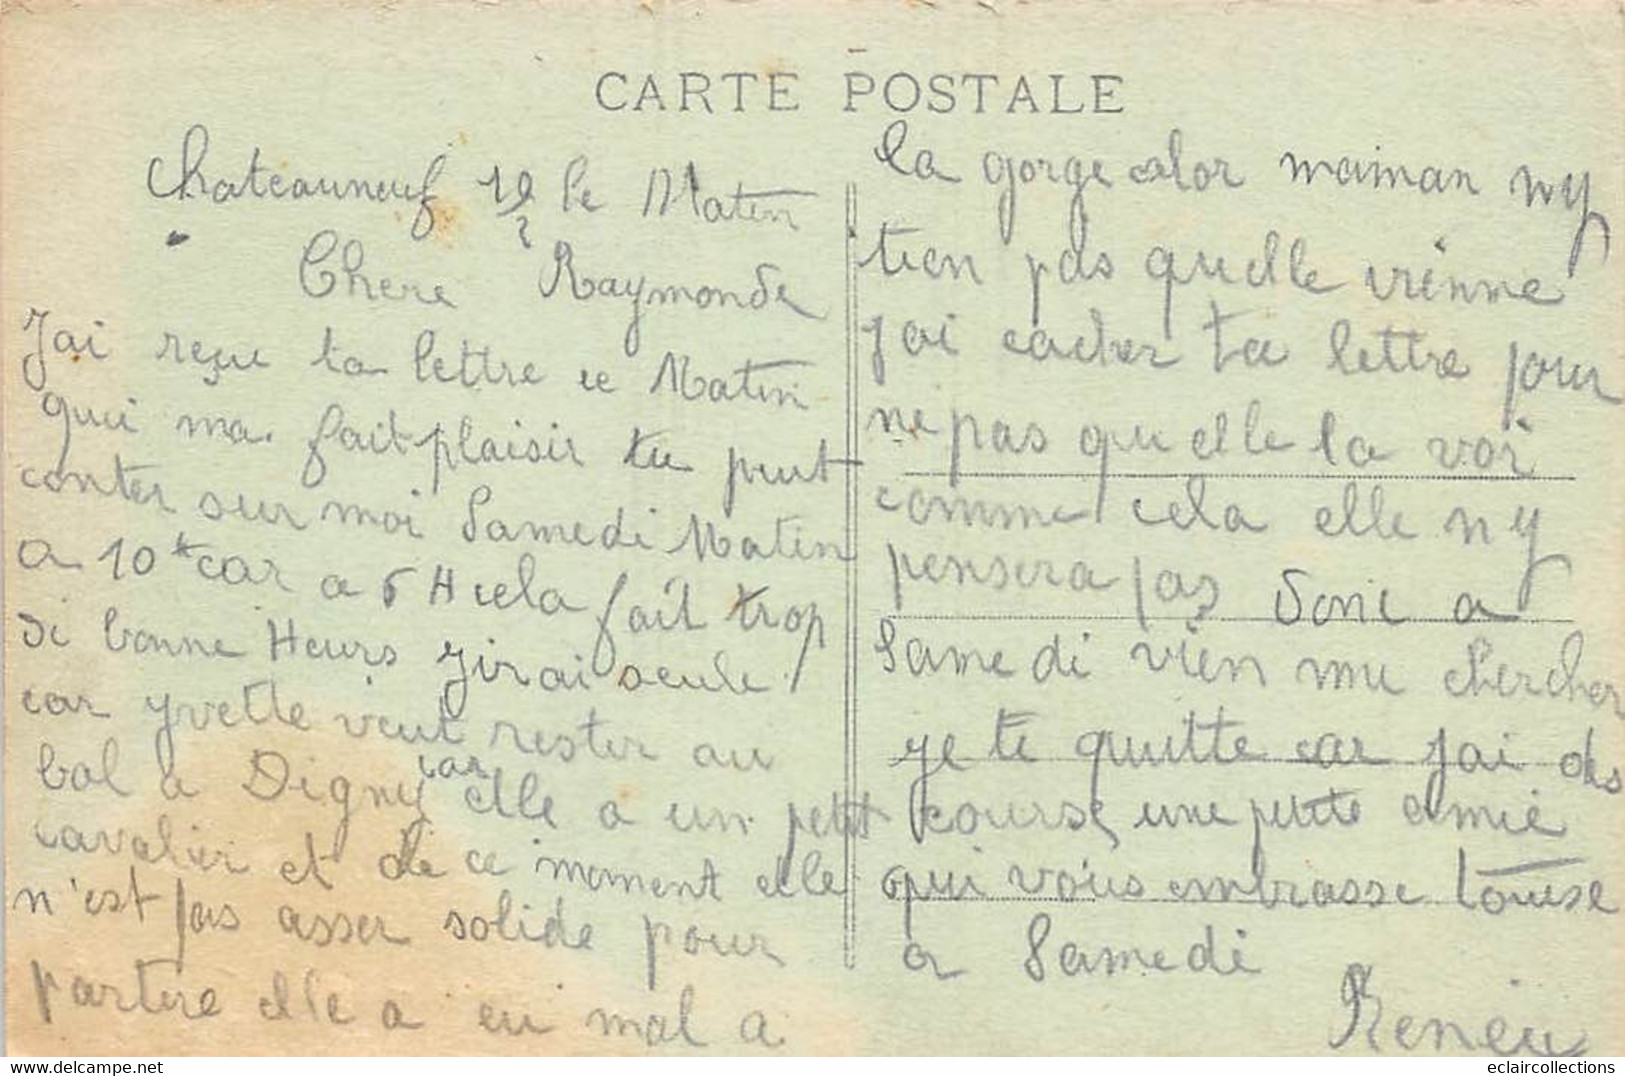 CARTE POSTALE
Chateauneuf 19 le Matin
Chere Raymonde
J'ai reçue ta lettre ce Matin
qui ma fait plaisir tu peut
conter sur moi Samedi Matin
a 10 car a 6 H cela fait trop
di bonne Heurs J'irai seule
car yvette veut rester au
bal a Digny car elle a un petit
cavalier et de ce moment elle
n'est pas asser solide pour
partire elle a eu mal a
la gorge alor maman ny
tien pas quelle vienne
Jai cacher ta lettre pour
ne pas qu elle la voi
comme cela elle ny
pensera pas donc a
Samedi vien me chercher
je te quitte car jai des
course, une petite amie
qui vous embrasse touse
a Samedi
Renée
eclaircollections